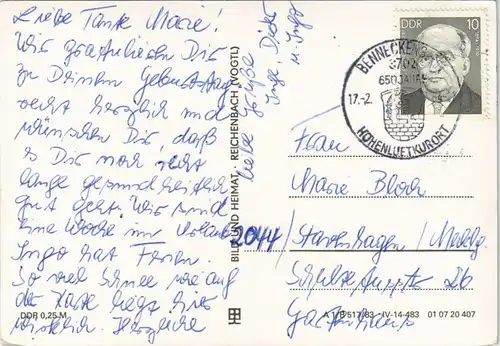 Liebe Tante Marie!
Wir gratulieren Dir
zu Deinem Geburtstag
recht herzlich und
wünschen Dir, daß
es Dir noch recht
lange gesundheitlich
gut geht. Wir sind
eine Woche im Urlaub
Ingo hat Ferien.
So viel Schnee wie auf
der Karte liegt hier
wirklich. Herzliche
liebe Grüße
Inge, Dieter
u. Ingo
DDR 0,25 M
BILD UND HEIMAT · REICHENBACH (VOGTL)
DDR 10
BENNECKEN
3702
650 JAHRE
17.-2.
HÖHENLUFTKURORT
Frau
Marie Bloch
2044/ Stavenhagen/ Meckl.
26
A 1/B 517/83 IV-14-483 01 07 20 407